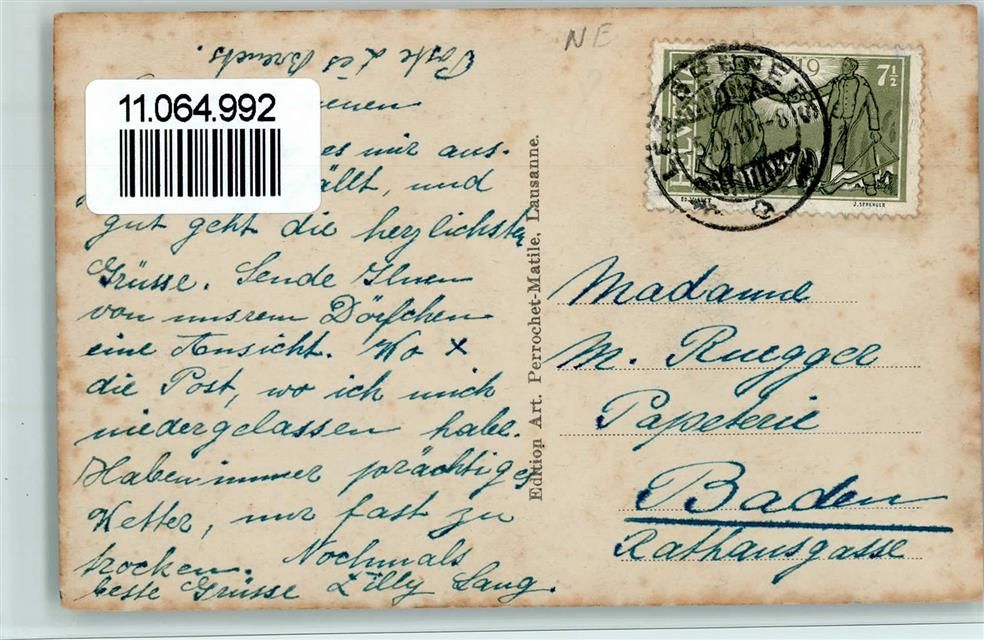 Poste Les Brenets.
NE
11.064.992
enen
es mir aus-
ällt, und
gut geht die herzlichsten
Grüsse. Sende Ihnen
von unsrem Dörfchen
eine Ansicht. Wo x
die Post, wo ich mich
niedergelassen habe.
Haben immer prächtiges
Wetter, nur fast zu
trocken. Nochmals
beste Grüsse Lilly Lang.
Edition Art. Perrochet-Matile, Lausanne.
19
7½
LES BRENETS
J. SPRENGER
Madame
M. Ruegger
Papeterie
Baden
Rathausgasse